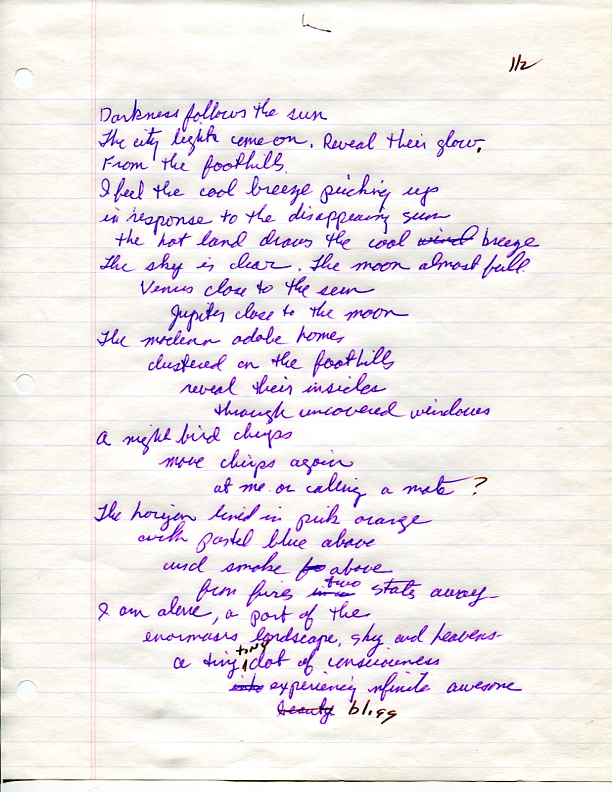 1/2
Darkness follows the sun
The city lights come on. Reveal their glow.
From the foothills.
I feel the cool breeze picking up
in response to the disappearing sun
the hot land draws the cool wind breeze
The sky is clear. The moon almost full.
Venus close to the sun
Jupiter close to the moon
The modern adobe homes
clustered on the foothills
reveal their insides
through uncovered windows
A night bird chirps
move chirps again
at me or calling a mate ?
The horizon lined in pink orange
with pastel blue above
and smoke above
from fires two states away
I am alone, a part of the
enormous landscape, sky and heavens
a tiny tiny dot of consciousness
into experiencing nfinite awesome
beauty bliss